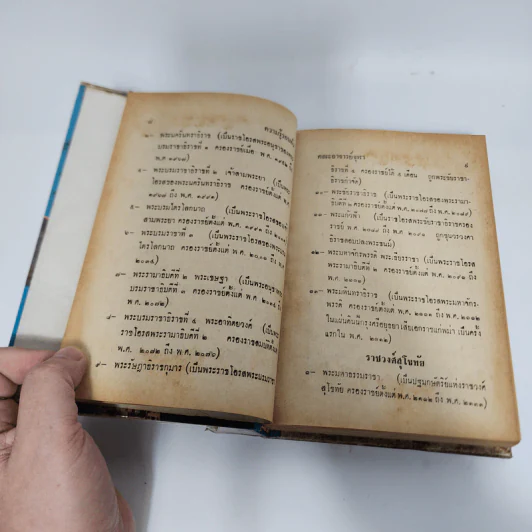 ๘
ความรู้รอบ
๓– พระนครินทราธิราช (เป็นพระราชโอรสพระอนุชาของ
บรมราชาธิราชที่ ๑ ครองราชย์เมื่อ พ.ศ. ๑๙๕๒
พ.ศ ๑๙๖๗)
๔– พระบรมราชาธิราชที่ ๒ เจ้าสามพระยา (เป็น
โอรสของพระนครินทราธิราช ครองราชย์ตั้งแต่ พ.ศ.
ถึง พ.ศ. ๑๙๙๑)
๕– พระบรมไตรโลกนาถ (เป็นพระราชโอรสของ
สามพระยา ครองราชย์ตั้งแต่ พ.ศ. ๑๙๙๑ ถึง
๖– พระบรมราชาที่ ๓ (เป็นพระราชโอรสของพระบรม
ไตรโลกนาถ ครองราชย์ตั้งแต่ พ.ศ. ๒๐๓๑ ถึง
๒๐๓๔)
๗– พระรามาธิบดีที่ ๒ พระเชษฐา (เป็นพระอนุชา
บรมราชาธิราชที่ ๓ ครองราชย์ตั้งแต่ พ.ศ. ๒๐๓๔
พ.ศ. ๒๐๗๒)
๘– พระบรมราชาธิราชที่ ๔ พระอาทิตยวงศ์ (เป็นพระ
ราชโอรสพระรามาธิบดีที่ ๒ ครองราชสมบัติตั้งแต่
พ.ศ. ๒๐๗๒ ถึง พ.ศ. ๒๐๗๖)
๙– พระรัษฎาธิราชกุมาร (เป็นพระราชโอรสพระบรมรา
คณะอาจารย์อุษา
๙
ธิราชที่ ๔ ครองราชย์ได้ ๕ เดือน ถูกพระชัยราชา
ธิราชกำจัด)
๑๐– พระชัยราชาธิราช (เป็นพระราชโอรสของพระรามา
ธิบดีที่ ๒ ครองราชย์ตั้งแต่ พ.ศ. ๒๐๗๗ ถึง พ.ศ. ๒๐๘๙)
๑๑– พระแก้วฟ้า (เป็นพระราชโอรสพระชัยราชาธิราชครอง
ราชย์ พ.ศ. ๒๐๘๙ ถึง พ.ศ. ๒๐๙๑ ถูกขุนวรวงศา
ธิราชลอบปลงพระชนม์)
๑๒– พระมหาจักรพรรดิ พระเธียรราชา (เป็นพระราชโอรส
พระรามาธิบดีที่ ๒ ครองราชย์ตั้งแต่ พ.ศ. ๒๐๙๑ ถึง
พ.ศ. ๒๑๑๑)
๑๓– พระมหินทราธิราช (เป็นพระราชโอรสพระมหาจักร
พรรดิ ครองราชย์ตั้งแต่ พ.ศ. ๒๑๑๑ ถึง พ.ศ. ๒๑๑๒
ในแผ่นดินนี้กรุงศรีอยุธยาเสียเอกราชแก่พม่า เป็นครั้ง
แรกใน พ.ศ. ๒๑๑๒)
ราชวงศ์สุโขทัย
๑– พระมหาธรรมราชา (เป็นปฐมกษัตริย์แห่งราชวงศ์
สุโขทัย ครองราชย์ตั้งแต่ พ.ศ. ๒๑๑๒ ถึง พ.ศ. ๒๑๓๓)